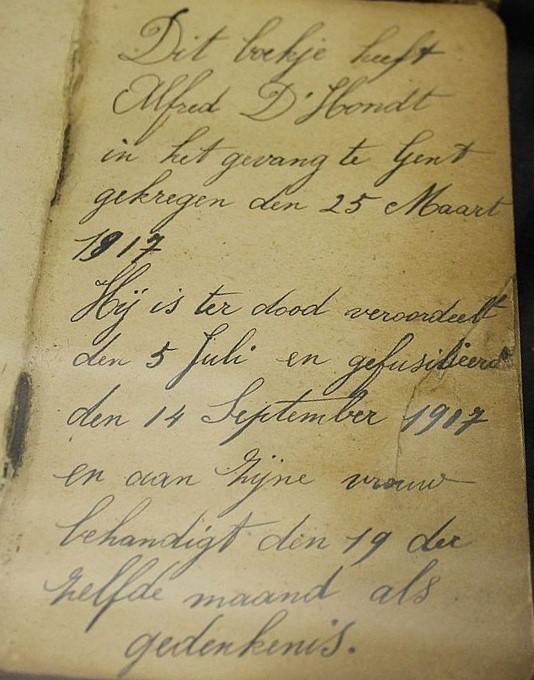 Dit boekje heeft
Alfred D'Hondt
in het gevang te Gent
gekregen den 25 Maart
1917
Hij is ter dood veroordeelt
den 5 Juli en gefusilieerd
den 14 September 1917
en aan zijne vrouw
behandigt den 19 der
zelfde maand als
gedenkenis.